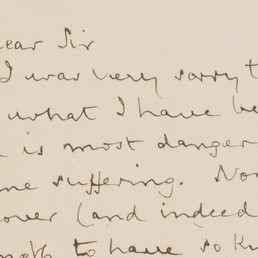 ear Sir
I was very sorry t
what I have be
is most danger
me suffering. No
over (and indeed
to have so kn